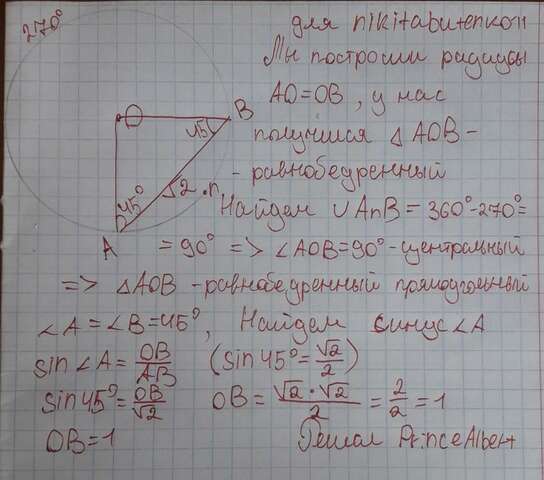 для nikitabutenko11
Мы построили радиусы
AO=OB, у нас
получился △ AOB -
- равнобедренный
Найдем ∪AnB = 360°-270°=
= 90° => ∠AOB=90°-центральный
=> △AOB - равнобедренный прямоугольный
∠A = ∠B=45°, Найдем синус ∠A
sin∠A = OB/AB (sin 45° = √2/2)
sin 45° = OB/√2 OB = √2·√2/2 = 2/2 = 1
OB=1 Решал PrinceAlbert
270°
O
B
45°
45°
√2
n
A